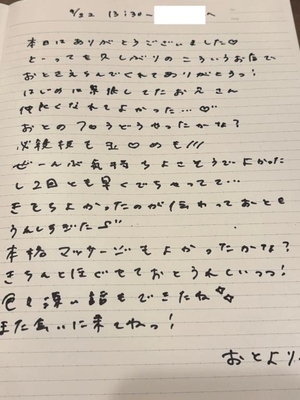 9/22 13:30〜 へ
本日はありがとうございました♡
とーっても久しぶりのこういうお店で
おとさえらんでくれてありがとうっ!
はじめは緊張してたお兄さん
仲良くなれてよかった…♡
おとのフロうどうやったかな?
必殺技も めも///
ぜーんぶ気持ちよさそうでよかった
し2回とも早くでちゃってて…
きもちよかったのが伝わっておとも
うれしすぎた
本格マッサージもよかったかな?
きちんとほぐせておとうれしいっっ!
色々深い話もできたね✧✧
また会いに来てねっ!
おとより。